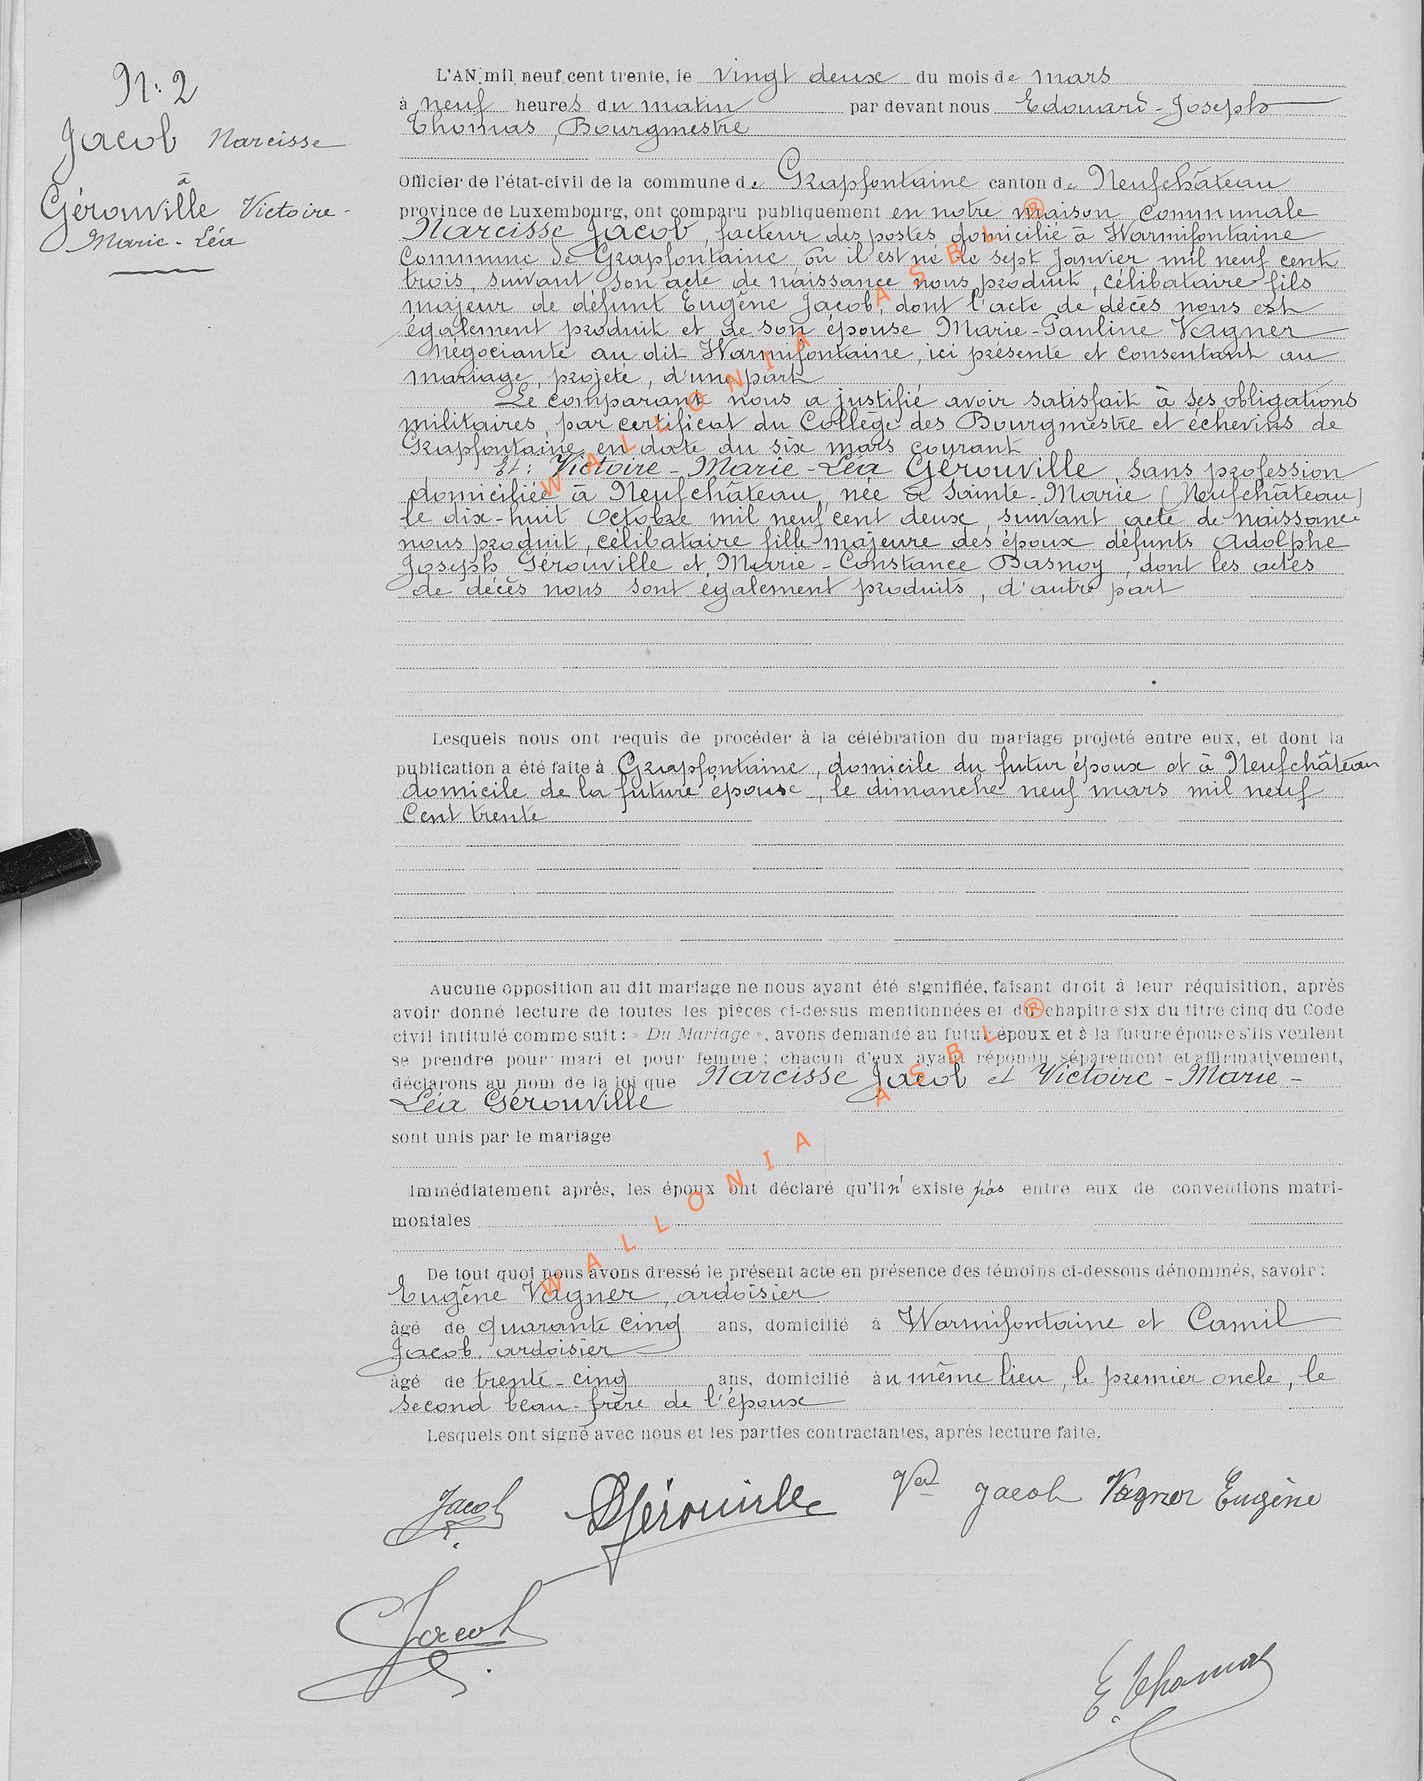 N: 2
Jacob Narcisse
à
Gérouville Victoire-
Marie-Léa
L'AN mil neuf cent trente, le vingt deux du mois de mars
à neuf heures du matin par devant nous Edouard-Joseph
Thomas, Bourgmestre
Officier de l'état-civil de la commune de Grapfontaine canton de Neufchâteau
province de Luxembourg, ont comparu publiquement en notre maison Communale
Narcisse Jacob, facteur des postes domicilié à Warmifontaine
Commune de Grapfontaine où il est né le sept Janvier mil neuf cent
trois, suivant son acte de naissance nous produit, célibataire fils
majeur de défunt Eugène Jacob, dont l'acte de décès nous est
également produit et de son épouse Marie-Pauline Vagner
négociante au dit Warmifontaine, ici présente et consentant au
mariage, projeté, d'une part
Le comparant nous a justifié avoir satisfait à ses obligations
militaires par certificat du Collège des Bourgmestre et échevins de
Grapfontaine en date du six mars courant
Et: Victoire-Marie-Léa Gérouville, sans profession
domiciliée à Neufchâteau, née à Sainte-Marie (Neufchâteau)
le dix-huit Octobre mil neuf cent deux, suivant acte de naissance
nous produit, célibataire fille majeure des époux défunts Adolphe
Joseph Gérouville et Marie-Constance Basnoy, dont les actes
de décès nous sont également produits, d'autre part
Lesquels nous ont requis de procéder à la célébration du mariage projeté entre eux, et dont la
publication a été faite à Grapfontaine, domicile du futur époux et à Neufchâteau
domicile de la future épouse, le dimanche neuf mars mil neuf
Cent trente
Aucune opposition au dit mariage ne nous ayant été signifiée, faisant droit à leur réquisition, après
avoir donné lecture de toutes les pièces ci-dessus mentionnées et du chapitre six du titre cinq du Code
civil intitulé comme suit : « Du Mariage », avons demandé au futur époux et à la future épouse s'ils veulent
se prendre pour mari et pour femme ; chacun d'eux ayant répondu séparément et affirmativement,
déclarons au nom de la loi que Narcisse Jacob et Victoire-Marie-
Léa Gérouville
sont unis par le mariage
Immédiatement après, les époux ont déclaré qu'il n' existe pas entre eux de conventions matri-
moniales
De tout quoi nous avons dressé le présent acte en présence des témoins ci-dessous dénommés, savoir :
Eugène Vagner, ardoisier
âgé de quarante cinq ans, domicilié à Warmifontaine et Camil
Jacob ardoisier
âgé de trente-cinq ans, domicilié au même lieu, le premier oncle, le
second beau-frère de l'époux
Lesquels ont signé avec nous et les parties contractantes, après lecture faite.
Jacob Gérouville Jacob Vagner Eugène
Jacob
E Thomas
WALLONIA ASBL ®
WALLONIA ASBL ®